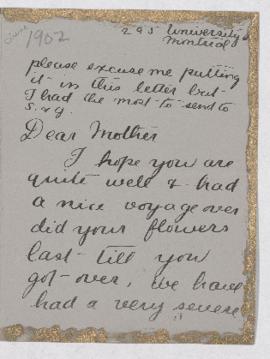 June 1902
295 University
Montreal
please excuse me putting
it in this letter but
I had the most to send to
Dear Mother
I hope you are
quite well & had
a nice voyage over
did your flowers
last till you
got over, we have
had a very severe